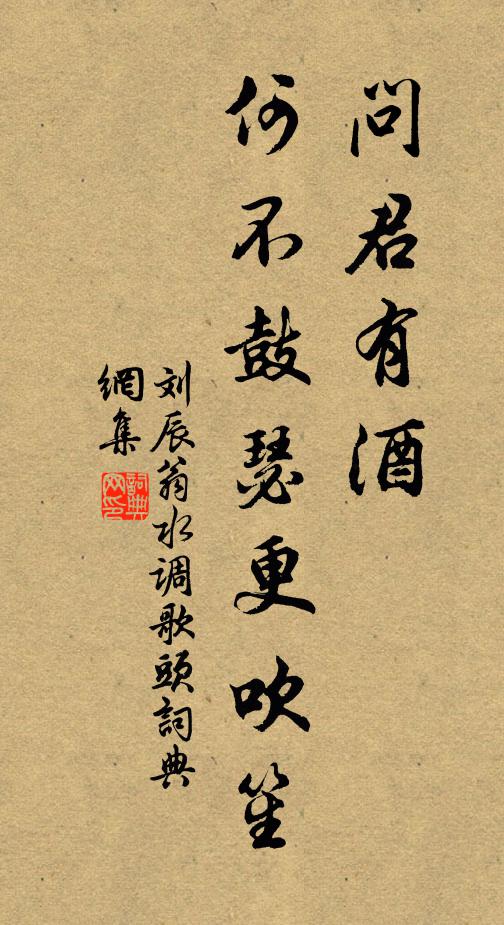 问君有酒
何不鼓瑟更吹笙
刘辰翁水调歌头詞典
網集
詞典
网印